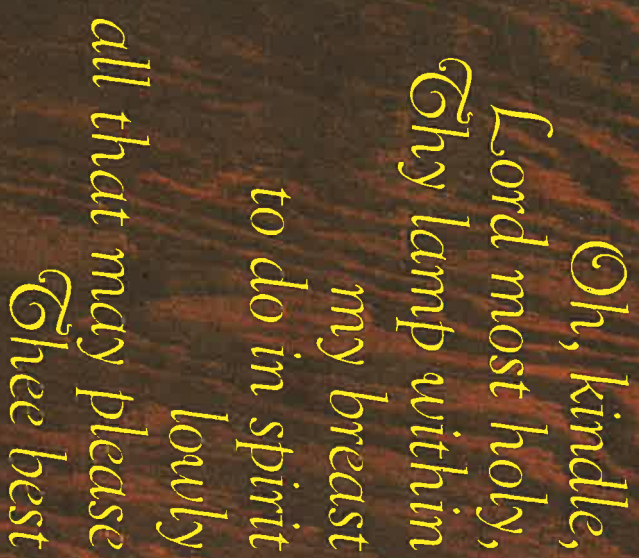 Oh, kindle,
Lord most holy,
Thy lamp within
my breast
to do in spirit
lowly
all that may please
Thee best